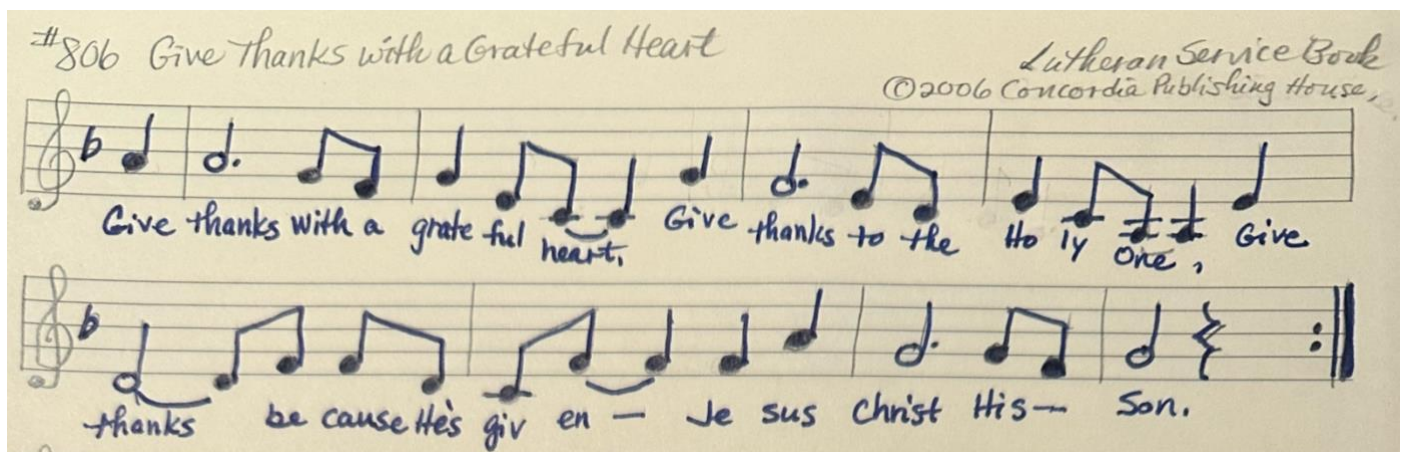 #806 Give Thanks with a Grateful Heart
Lutheran Service Book
©2006 Concordia Publishing House,
Give thanks with a grate ful heart, Give thanks to the Ho ly One, Give
thanks be cause He's giv en — Je sus Christ His— Son.